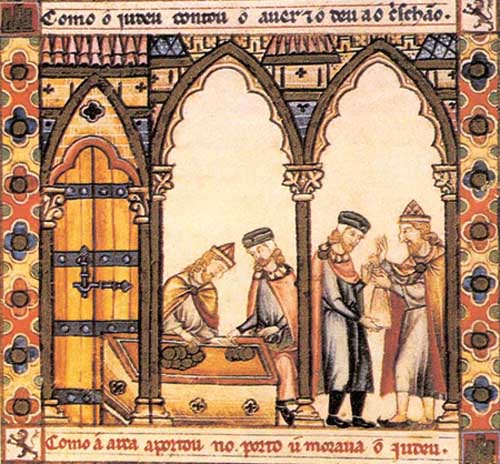 Como o iudeu contou o auer ⁊ o deu ao
Como á arca aportou no porto ú moraua o iudeu.